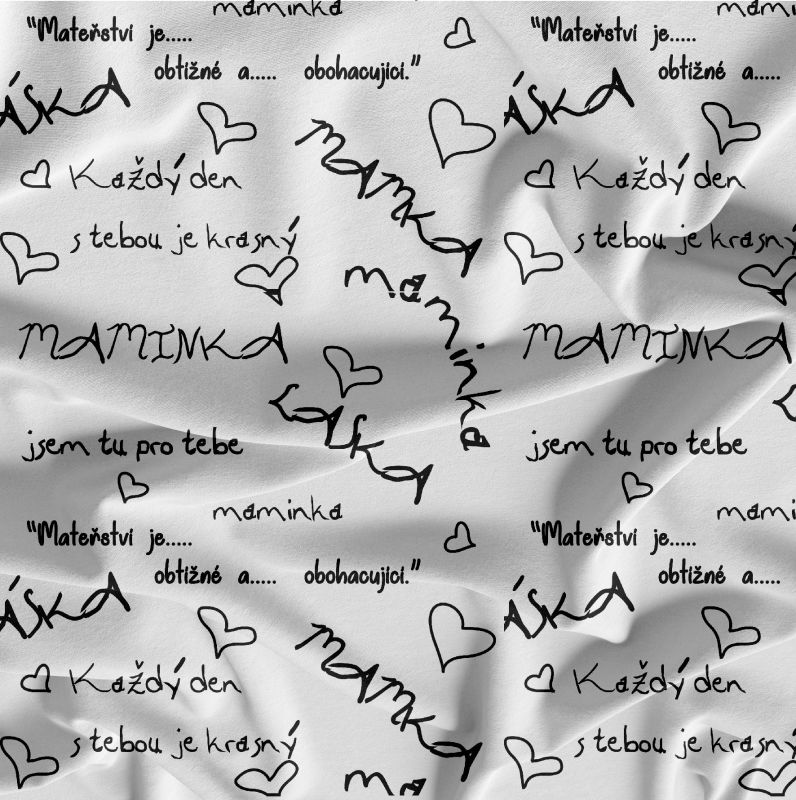 maminka mami
"Mateřství je..... "Mateřství je.....
obtížné a..... obohacující." obtížné a.....
ÁSKA ÁSKA
MAMKA
Každý den Každý den
s tebou je krasný s tebou je krasný
maminka
MAMINKA MAMINKA
LASKA
jsem tu pro tebe jsem tu pro tebe
maminka mami
"Mateřství je..... "Mateřství je.....
obtížné a..... obohacující." obtížné a.....
ÁSKA ÁSKA
MAMKA
Každý den Každý den
s tebou je krasný s tebou je krasný
ma